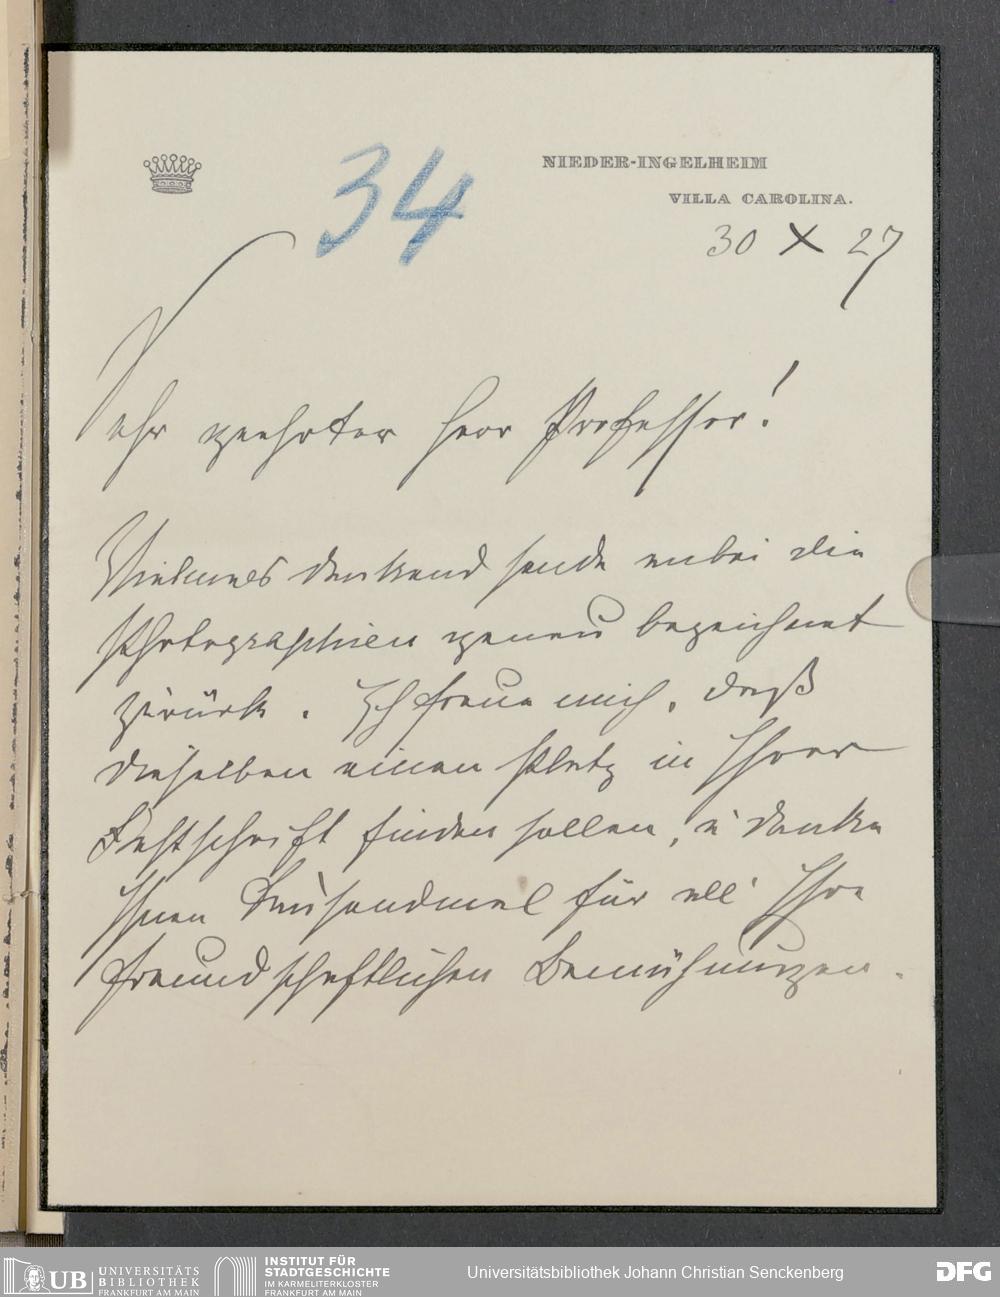 34
NIEDER-INGELHEIM
VILLA CAROLINA.
30 X 27
Sehr geehrter Herr Professor!
Vielmals dankend sende anbei die
Photographien genau bezeichnet
zurück. Ich freue mich, daß
dieselben einen Platz in Ihrer
Festschrift finden sollen, u danke
Ihnen tausendmal für all' Ihre
freundschaftlichen Bemühungen.
UB UNIVERSITÄTS
BIBLIOTHEK
FRANKFURT AM MAIN
INSTITUT FÜR
STADTGESCHICHTE
IM KARMELITERKLOSTER
FRANKFURT AM MAIN
Universitätsbibliothek Johann Christian Senckenberg
DFG